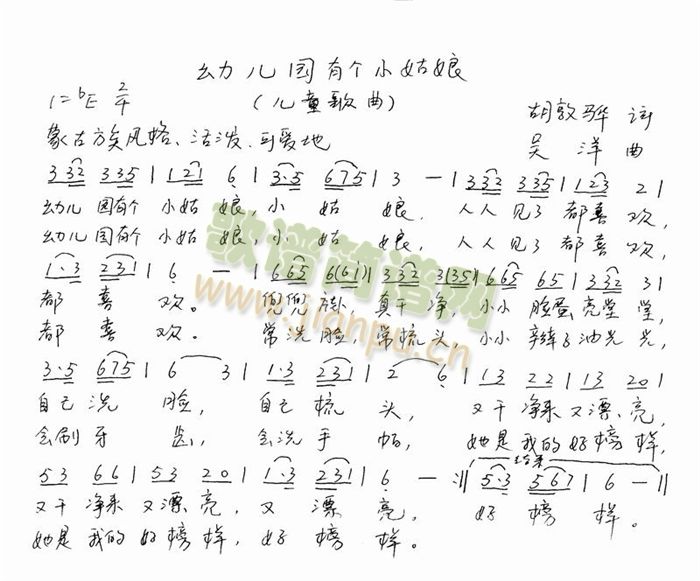 幼儿园有个小姑娘
1=bE 2/4 (儿童歌曲) 胡敦骅 词
蒙古族风格、活泼、可爱地 吴洋 曲
3 32 3 35 | 1 21 6 | 3·5 675 | 3 — | 3 32 3 35 | 1 23 2 |
幼儿园有个 小姑娘, 小姑娘, 人人见了都喜欢,
幼儿园有个 小姑娘, 小姑娘, 人人见了都喜欢,
1·3 231 | 6 — | 6 65 6(61) | 3 32 3(35) | 6 65 65 | 3 32 31 |
都喜欢. 兜兜 真干净, 小小脸蛋亮堂堂,
都喜欢. 常洗脸, 常梳头, 小小辫子油光光,
3·5 675 | 6 3 | 1·3 231 | 2 6 | 13 22 | 13 20 |
自己洗脸, 自己梳头, 又干净来又漂亮,
会刷牙齿, 会洗手帕, 她是我的好榜样,
53 66 | 53 20 | 1·3 231 | 6 — :|| 结束 5·3 567 | 6 — ||
又干净来又漂亮, 又漂亮, 好榜样。
她是我的好榜样, 好榜样。
歌谱简谱网
www.jianpu.cn